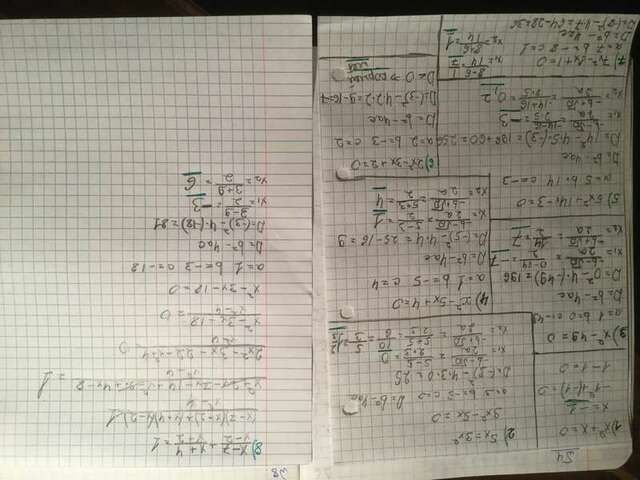 №4
1) x²+x=0
x=-1
-1²+(-1)=0
1-1=0
2) 5x=3x²
3x²-5x=0
a=3 b=-5 c=0 D=b²-4ac
D=(-5)²-4·3·0=25
x₁=(-b-√D)/2a=(5-5)/(2·3)=0
x₂=(-b+√D)/2a=(5+5)/(2·3)=10/6=5/3=1 2/3
3) x²-49=0
a=1 b=0 c=-49
D=b²-4ac
D=0²-4·(-49)=196
x₁=(-b-√D)/2a=(0-14)/2=-7
x₂=(-b+√D)/2a=14/2=7
4) x²-5x+4=0
a=1 b=-5 c=4
D=b²-4ac
D=(-5)²-4·4=25-16=9
x₁=(-b-√D)/2a=(5-3)/2=1
x₂=(-b+√D)/2a=(5+3)/2=4
5) 5x²+14x-3=0
a=5 b=14 c=-3
D=b²-4ac
D=14²-4·5·(-3)=196+60=256
x₁=(-b-√D)/2a=(-14-16)/(2·5)=-3
x₂=(-b+√D)/2a=(-14+16)/(2·5)=0,2
6) 2x²-3x+2=0
a=2 b=-3 c=2
D=b²-4ac
D=(-3)²-4·2·2=9-16=-7
D<0 => корней
нет
7) 7x²-8x+1=0
a=7 b=-8 c=1
D=b²-4ac
D=(-8)²-4·7=64-28=36
x₁=(8-6)/14=1/7
x₂=(8+6)/14=1
№8.
8) (x-7)/(x-2)+(x+4)/(x+2)=1
((x-7)(x+2)+(x+4)(x-2))/(x²-4)=1
(x²+2x-7x-14+x²-2x+4x-8)/(x²-4)=1
(2x²-3x-22-x²+4)/(x²-4)=0
(x²-3x-18)/(x²-4)=0
x²-3x-18=0
a=1 b=-3 c=-18
D=b²-4ac
D=(-3)²-4·(-18)=81
x₁=(3-9)/2=-3
x₂=(3+9)/2=6